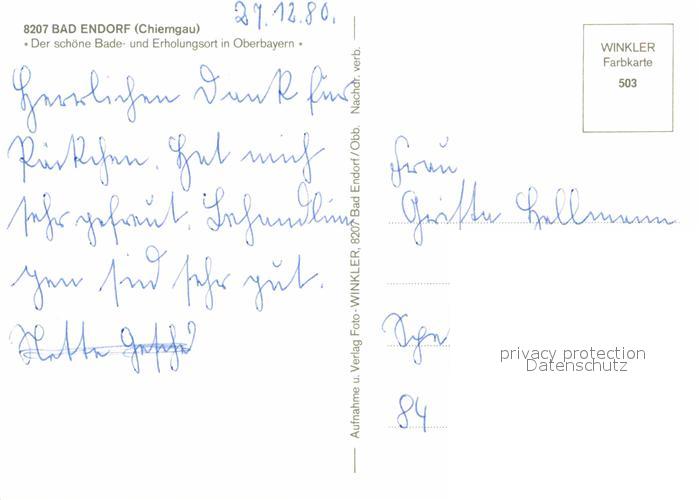 27.12.80.
8207 BAD ENDORF (Chiemgau)
• Der schöne Bade- und Erholungsort in Oberbayern •
Herrlichen Dank für
Päckchen. Hat mich
sehr gefreut. Behandlun
gen sind sehr gut.
Nette
Aufnahme u. Verlag Foto-WINKLER, 8207 Bad Endorf/Obb. Nachdr. verb.
WINKLER
Farbkarte
503
Frau
Hellmann
84
privacy protection
Datenschutz